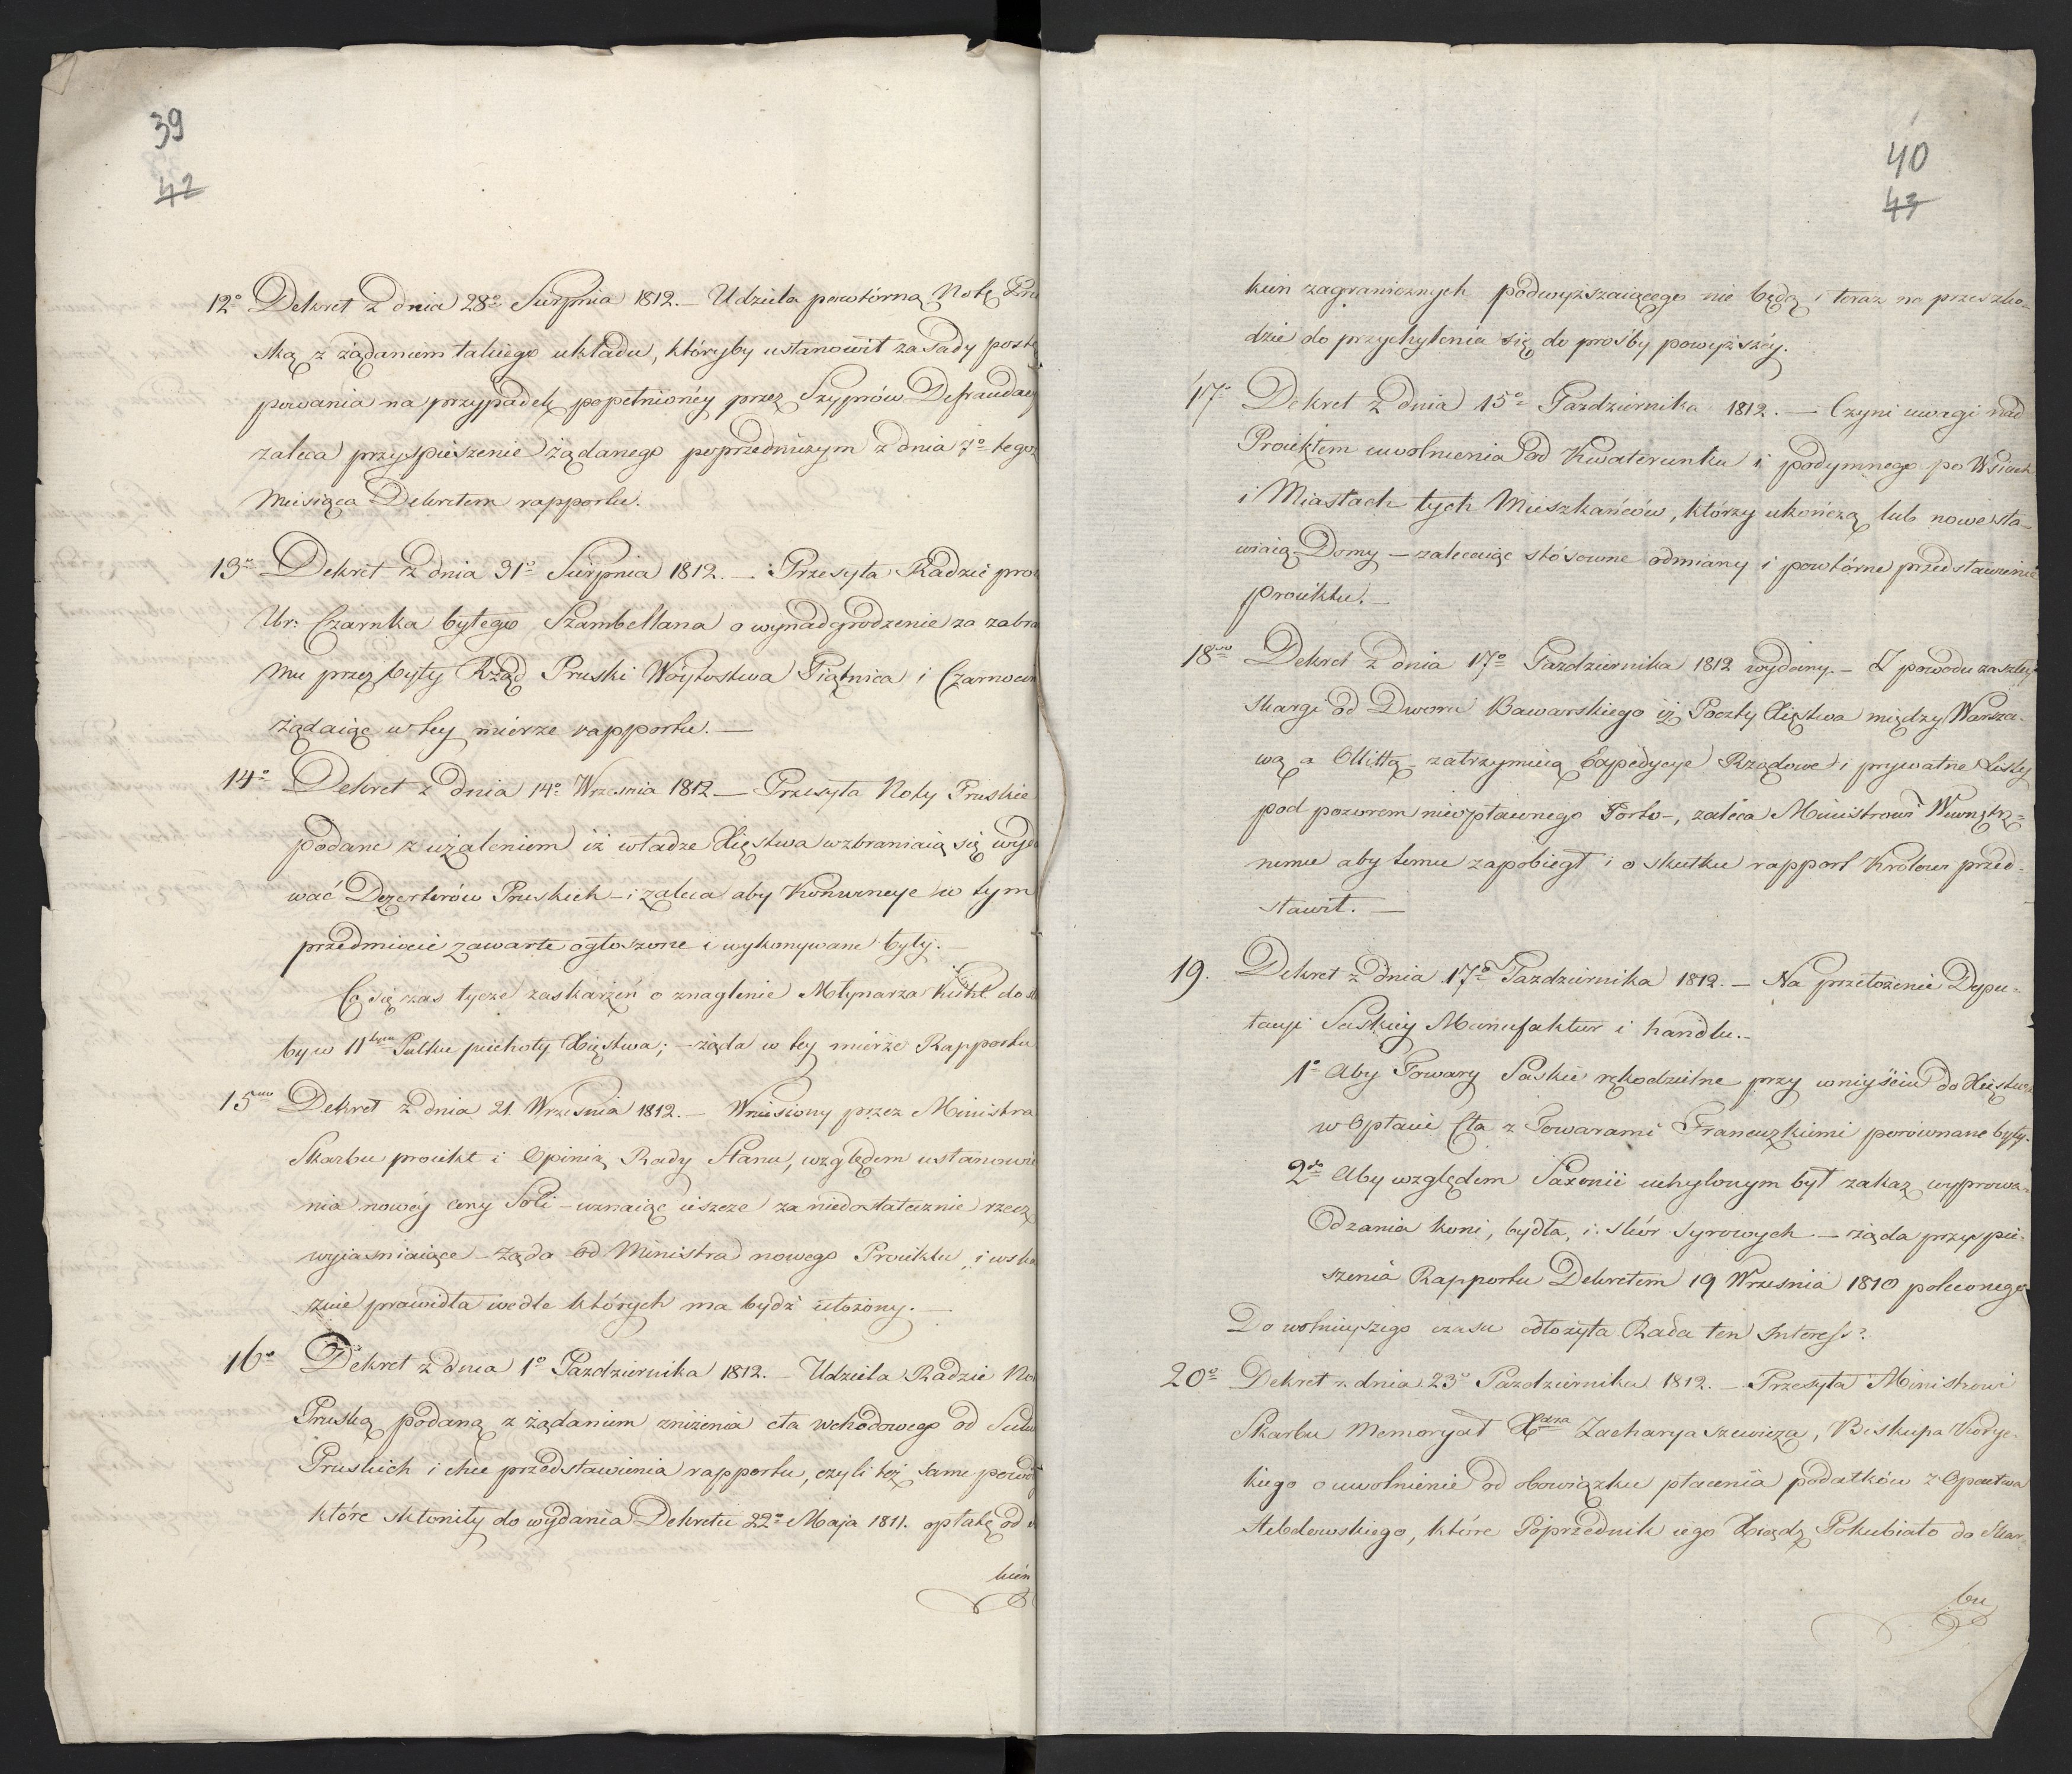 39
42
12º Dekret z dnia 28º Sierpnia 1812. – Udziela powtórną Notę Pru
ską z żądaniem takiego układu, któryby ustanowił zasady postę
powania na przypadek popełnionéy przez Szyprów Defraudacyi
zaleca przyspieszenie żądanego poprzedniczym z dnia 7º tegoż
Miesiąca Dekretem rapportu.
13º Dekret z dnia 31º Sierpnia 1812. – Przesyła Radzie proś
Ur: Czarnka byłego Szambellana o wynadgrodzenie za zabra
mu przez były Rząd Pruski Wóytostwa Piątnica i Czarnocin
żądaiąc w tey mierze rapportu. —
14º Dekret z dnia 14º Września 1812 — Przesyła Noty Pruskie
podane z użaleniem iż władze Xięstwa wzbraniaią się wyda
wać Dezerterów Pruskich – i zaleca aby Konwencye w tym
przedmiocie zawarte ogłoszone i wykonywane były. —
Co się zas tycze zaskarżeń o znaglenie Młynarza Kühl do słu
by w 11tym Pułku piechoty Xięstwa; – żąda w tey mierze Rapportu
15to Dekret z dnia 21 Września 1812. – Wniesiony przez Ministra
Skarbu proiekt i Opinią Rady Stanu, względem ustanowie
nia nowéy ceny Soli – uznaiąc ieszcze za niedostatecznie rzecz
wyiaśniaiące – żąda od Ministra nowego Proiektu, i wska
zuie prawidła wedle których ma bydź ułożony. —
16º Dekret z dnia 1º Pazdziernika 1812. – Udziela Radzie No
Pruską podaną z żądaniem zniżenia cła wchodowego od Suki
Pruskich i chce przedstawienia rapportu, czyli też same powod
które skłoniły do wydania Dekretu 22º Maja 1811. opłatę od
kień
40
43
kień zagranicznych podwyższaiącego nie będą i teraz na przeszko-
dzie do przychylenia się do prośby powyższéy.
17º Dekret z dnia 15º Pazdziernika 1812. — Czyni uwagi nad
Proiektem uwolnienia od Kwaterunku i podymnego po Wsiach
i Miastach tych Mieszkańców, którzy ukończą lub nowe sta-
wiaią Domy – zalecaiąc stósowne odmiany i powtórne przedstawienie
proiektu. —
18vo Dekret z dnia 17º Pazdziernika 1812 wydany. – Z powodu zaszłey
skargi od Dworu Bawarskiego iż Poczty Xięstwa między Warsza-
wą a Olittą – zatrzymuią Expedycye Rządowe i prywatne Listy
pod pozorem nieopłaconego Porto –, zaleca Ministrowi Wewnętrz-
nemu aby temu zapobiegł i o skutku rapport Królowi przed-
stawił. —
19. Dekret z dnia 17º Pazdziernika 1812. – Na przełożenie Depu-
tacyi Saskiey Manufaktur i handlu. –
1º Aby Towary Saskie rękodzielne przy wniyściu do Xięstwa
w Opłacie Cła z Towarami Francuzkiemi porównane były.
2do Aby względem Saxonii uchylonym był zakaz wyprowa-
dzania koni, bydła, i skór syrowych – żąda przyspie-
szenia Rapportu Dekretem 19 Września 1810 poleconego
Do wolnieyszego czasu odłożyła Rada ten Interess.
20º Dekret z dnia 23º Pazdziernika 1812. – Przesyła Ministrowi
Skarbu Memoryał Xdza Zacharyaszewicza, Biskupa Koryc-
kiego o uwolnienie od obowiązku płacenia podatków z Opactwa
Hebdowskiego, które Poprzednik iego Xiądz Pokubiato do Skar-
bu